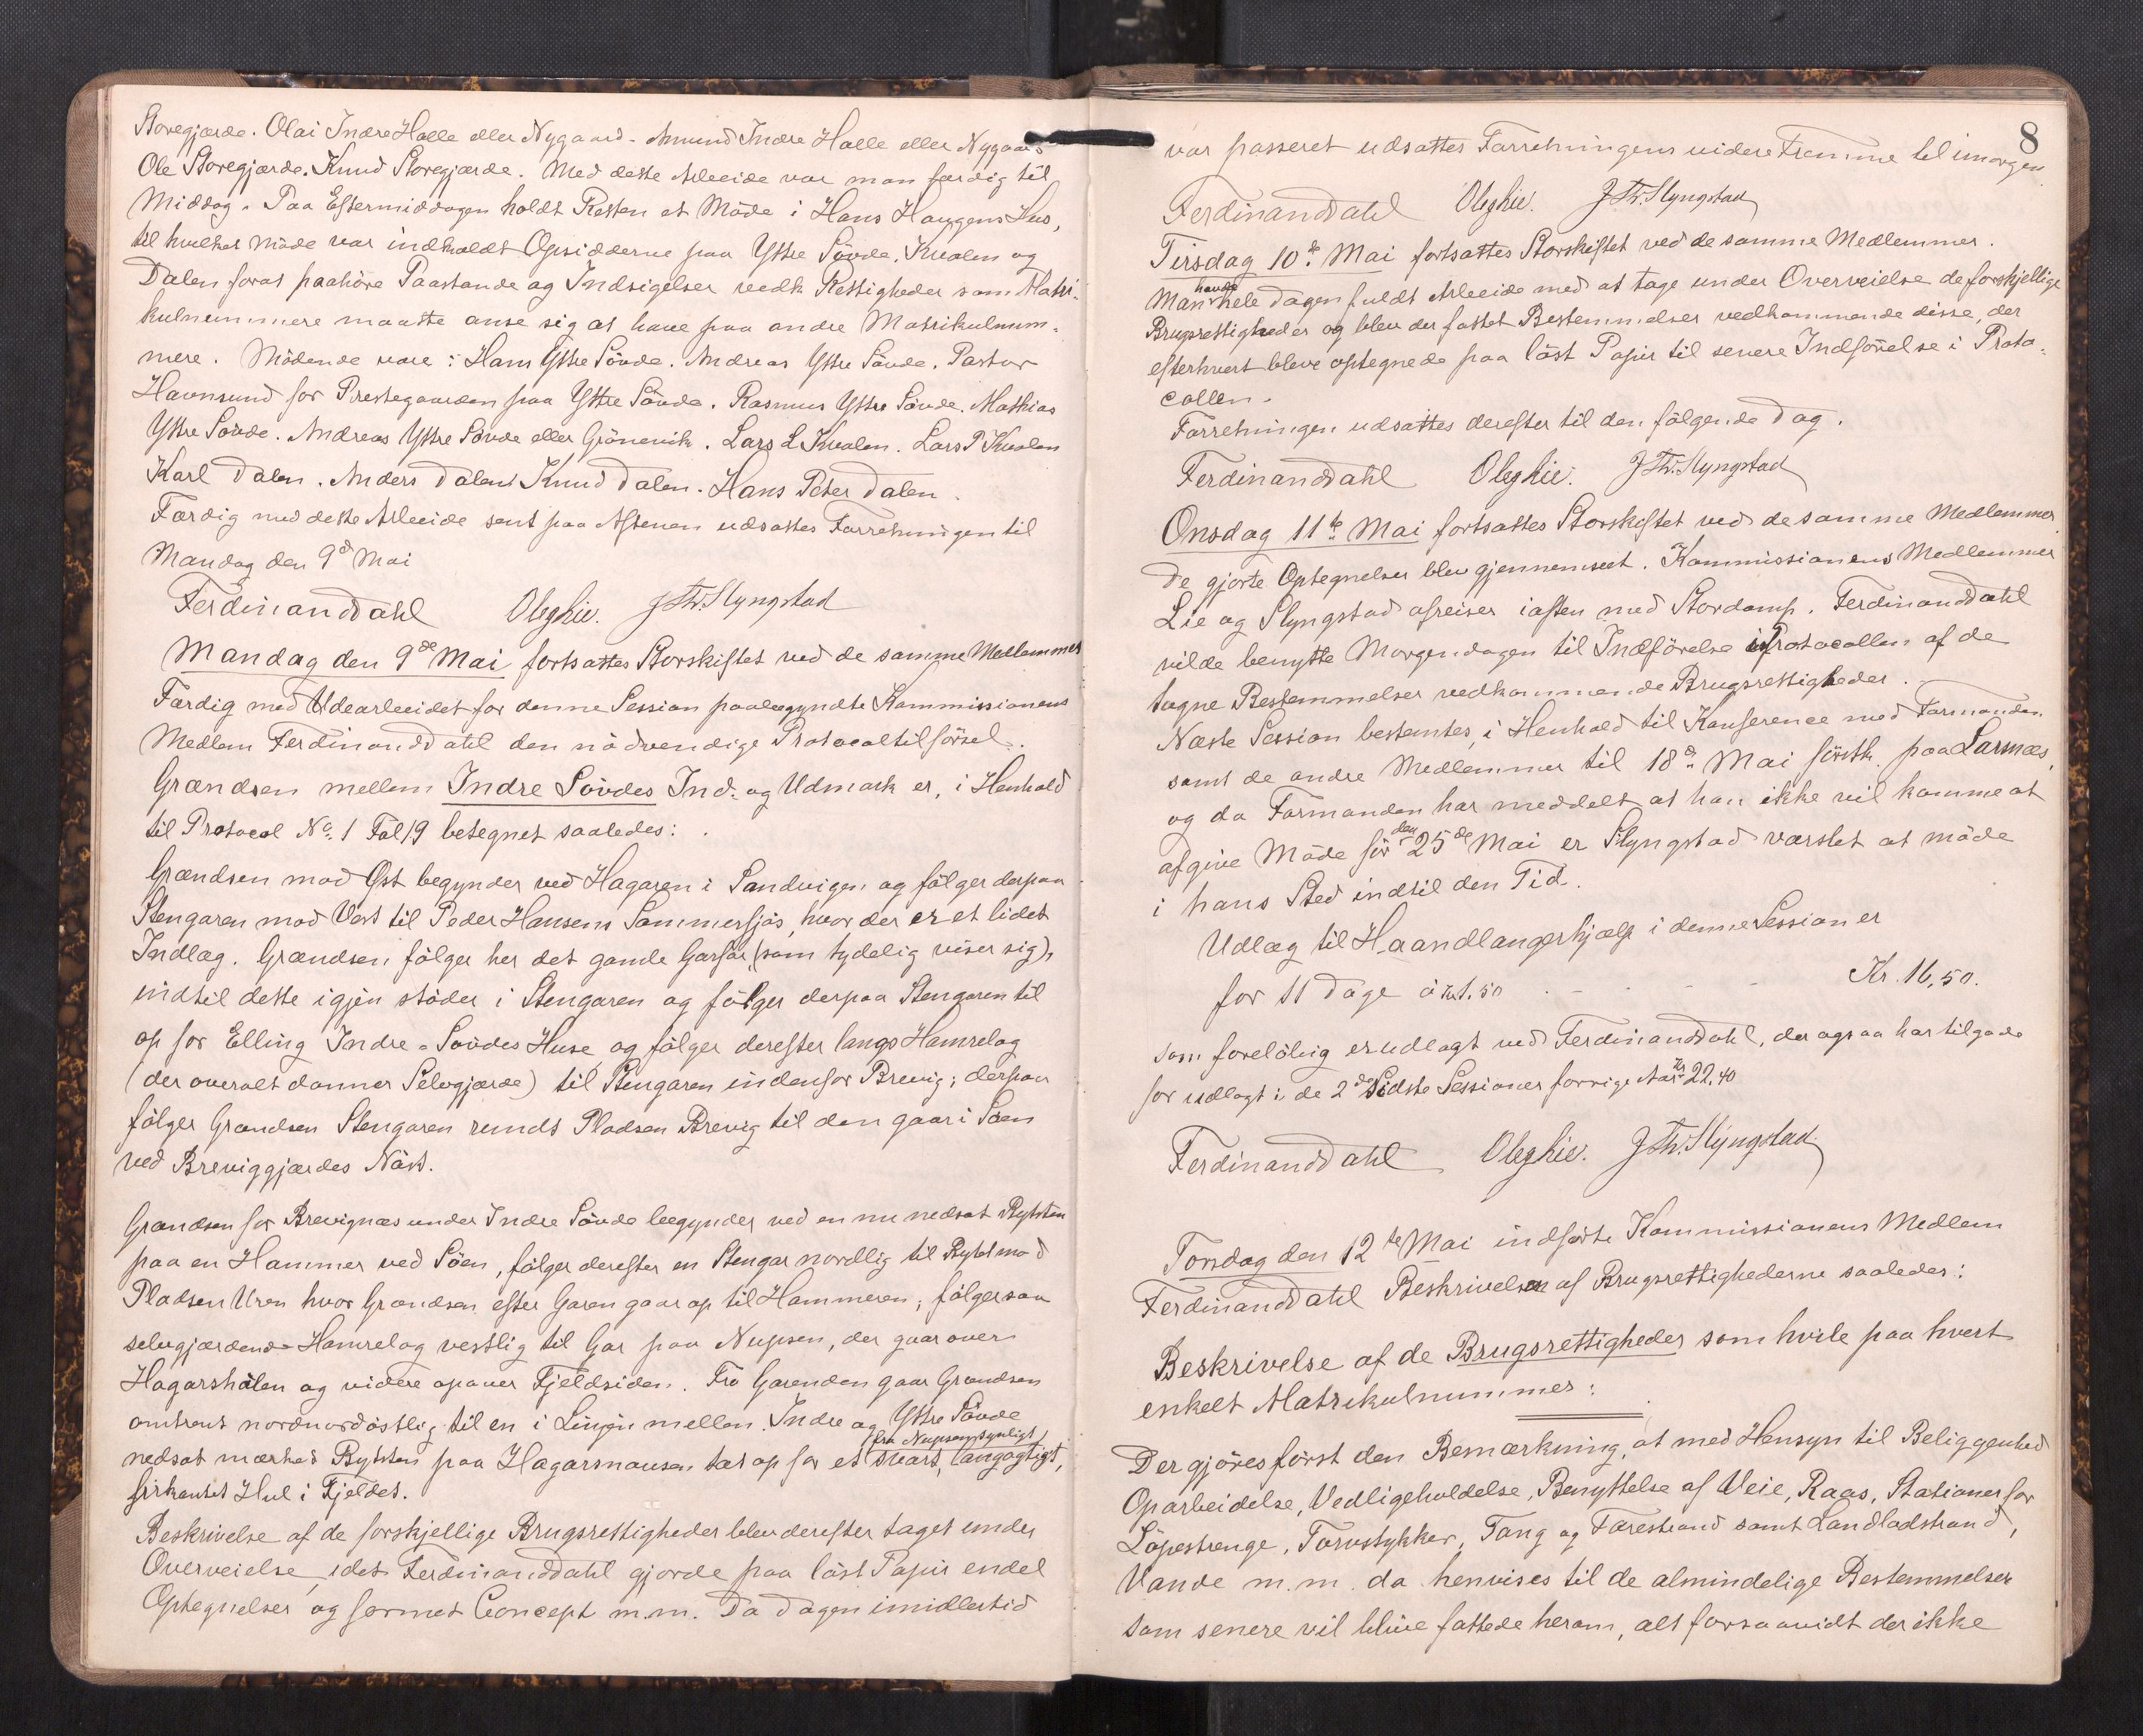 Storegjærde. Olai Indre Halle eller Nygaard. Amund Indre Halle eller Nygaard
Ole Storegjærde. Knud Storegjærde. Med dette Arbeide var man færdig til
Middag. Paa Eftermiddagen holdt Retten et Möde i Hans Haugens Hus,
til hvilket Möde var indkaldt Opsidderne paa Yttre Sövde, Kvalen og
Dalen forat paahöre Paastande og Indsigelser vedk. Rettigheder som Matri-
kulnummere maatte anse sig at have paa andre Matrikulnum-
mere. Mödende vare: Hans Yttre Sövde. Andreas Yttre Sövde. Pastor
Havnsund for Prestegaarden paa Yttre Sövde. Rasmus Yttre Sövde. Mathias
Yttre Sövde. Andreas Yttre Sövde eller Grönevik. Lars L Kvalen. Lars P Kvalen
Karl Dalen. Anders Dalen. Knud Dalen. Hans Peter Dalen.
Færdig med dette Arbeide sent paa Aftenen udsattes Forretningen til
Mandag den 9d Mai
Ferdinand Dahl Ole Lie. J Th. Slyngstad
Mandag den 9de Mai fortsattes Storskiftet ved de samme Medlemmer
Færdig med Udearbeidet for denne Session paabegyndte Kommissionens
Medlem Ferdinand Dahl den nödvendige Protocoltilförsel.
Grændsen mellem Indre Sövdes Ind- og Udmark er, i Henhold
til Protocol No. 1 Fol 19 betegnet saaledes:
Grændsen mod Öst begynder ved Hagaren i Sandvigen og fölger derpaa
Stengaren mod Vest til Peder Hansens Sommerfjös, hvor der er et lidet
Indlæg. Grændsen fölger her det gamle Garfar, (som tydelig viser sig),
indtil dette igjen stöder i Stengaren og fölger derpaa Stengaren til
op for Elling Indre-Sövdes Huse og fölger derefter langs Hamrelag
(der overalt danner Selvgjærde) til Stengaren indenfor Brevig; derpaa
fölger Grændsen Stengaren rundt Pladsen Brevig til den gaar i Söen
ved Breviggjærdes Näst.
Grændsen for Brevignæs under Indre Sövde begynder ved en nu nedsat Bytsten
paa en Hammer ved Söen, fölger derefter en Stengar nordlig til Bytet mod
Pladsen Uren hvor Grændsen efter Garen gaar op til Hammeren; fölger saa
selvgjærdende Hamrelag vestlig til Gar paa Nupsen, der gaar over
Hagarshälen og videre opover Fjeldsiden. Fra Garenden gaar Grændsen
omtrent nordnordöstlig til en i Linjen mellem Indre og Yttre Sövde
nedsat mærket Bytsten paa Hagarsnausen tæt op for et fra Nupsen synligt, svart, langagtigt,
firkantet Hul i Fjeldet.
Beskrivelse af de forskjellige Brugsrettigheder blev derefter taget under
Overveielse, idet Ferdinand Dahl gjorde paa löst Papir endel
Optegnelser og formet Concept m.m. Da Dagen imidlertid
8
var passeret udsattes Forretningens videre Fremme til imorgen
Ferdinand Dahl Ole Lie. J Th. Slyngstad
Tirsdag 10de Mai fortsattes Storskiftet ved de samme Medlemmer.
Man havde hele Dagen fuldt Arbeide med at tage under Overveielse de forskjellige
Brugsrettigheder og blev der fattet Bestemmelser vedkommende disse, der
efterhvert bleve optegnede paa löst Papir til senere Indförelse i Proto-
collen.
Forretningen udsattes derefter til den fölgende Dag.
Ferdinand Dahl Ole Lie. J Th. Slyngstad
Onsdag 11te Mai fortsattes Storskiftet ved de samme Medlemmer
De gjorte Optegnelser blev gjennemseet. Kommissionens Medlemmer
Lie og Slyngstad afreiser iaften med Stordamp. Ferdinand Dahl
vilde benytte Morgendagen til Indförelse i Protocollen af de
tagne Bestemmelser vedkommende Brugsrettigheder.
Næste Session bestemtes, i Henhold til Konference med Formanden
samt de andre Medlemmer til 18de Mai förstk. paa Larsnæs,
og da Formanden har meddelt at han ikke vil komme at
afgive Möde för den 25de Mai er Slyngstad varslet at möde
i hans Sted indtil den Tid.
Udlæg til Haandlangerhjælp i denne Session er
for 11 Dage à Kr 1.50 - - - Kr. 16,50.
som forelöbig er udlagt ved Ferdinand Dahl, der ogsaa har tilgode
for udlagt i de 2de Sidste Sessioner forrige Aar Kr 22.40
Ferdinand Dahl Ole Lie. J Th. Slyngstad
Torsdag den 12te Mai indförte Kommissionens Medlem
Ferdinand Dahl Beskrivelsen af Brugsrettighederne saaledes:
Beskrivelse af de Brugsrettigheder som hvile paa hvert
enkelt Matrikulnummer:
Der gjöres först den Bemærkning, at med Hensyn til Beliggenhed
Oparbeidelse, Vedligeholdelse, Benyttelse af Veie, Raas, Stationer for
Löpestrenge, Torvstykker, Tang og Tarestrand samt Landladstrand,
Vande m.m. da henvises til de almindelige Bestemmelser
som senere vil blive fattede herom, alt forsaavidt der ikke